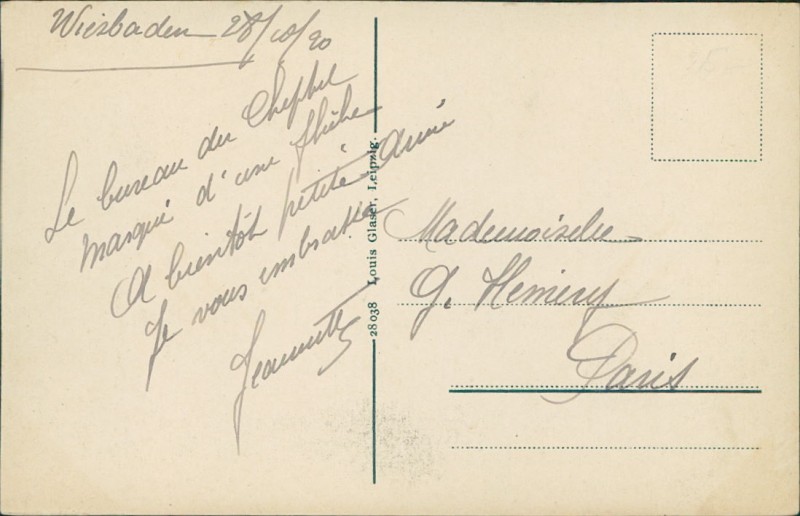 Wiesbaden 28/10/20
Le bureau du
marqué d'une flèche
A bientôt petite amie
Je vous embrasse
Jeannette
28038 Louis Glaser, Leipzig.
Mademoiselle
G. Hemery
Paris